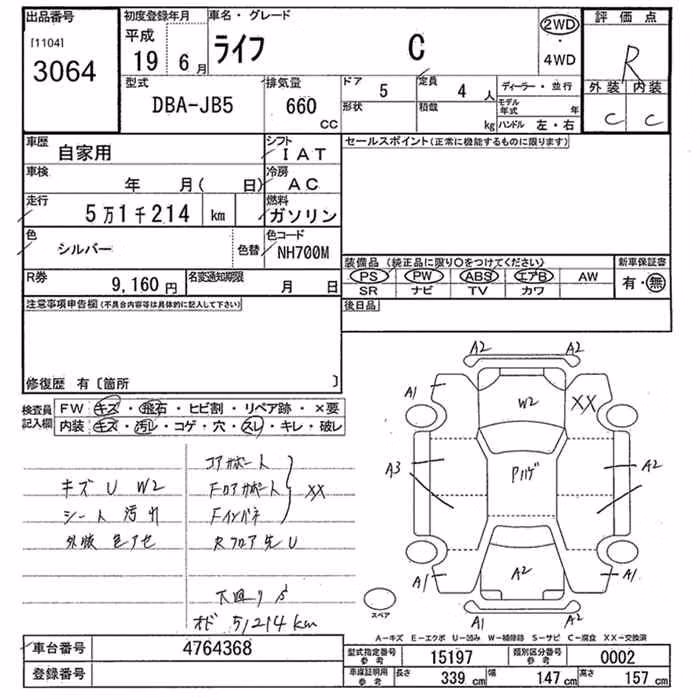 出品番号 初度登録年月 車名・グレード 評価点
[1104] 平成 ライフ C 2WD ・ 4WD R
3064 19 年 6 月
型式 排気量 ドア 5 定員 4 人 ディーラー・並行 外装 内装
DBA-JB5 660 CC 形状 積載 kg モデル年式 年 C C
ハンドル 左・右
車歴 自家用 シフト IAT セールスポイント(正常に機能するものに限ります)
車検 年 月( 日) 冷房 AC
走行 5万1千214 km 燃料 ガソリン
色 シルバー 色替 色コード NH700M
装備品 (純正品に限り○をつけてください) 新車保証書
R券 9,160 円 名変通知期限 月 日 PS PW ABS エアB AW 有・無
SR ナビ TV カワ
注意事項申告欄(不具合内容等は具体的に記入して下さい) 後日品
修復歴 有〔箇所 〕
検査員記入欄 FW キズ・飛石・ヒビ割・リペア跡・×要
内装 キズ・汚れ・コゲ・穴・スレ・キレ・破レ
コアサポート
キズ U W2 Fロアサポート XX
シート 汚れ Fインパネ
外板 色アセ Rフロア先U
オド 51214km
A2 A2
A1 W2 XX
A3 Pハゲ A2
A1 A2 A1
スペア A1 A2
A−キズ E−エクボ U−凹み W−補修跡 S−サビ C−腐食 XX−交換済
車台番号 4764368 型式指定番号 参考 15197 類別区分番号 参考 0002
登録番号 車庫証明用 参考 長さ 339 cm 幅 147 cm 高さ 157 cm